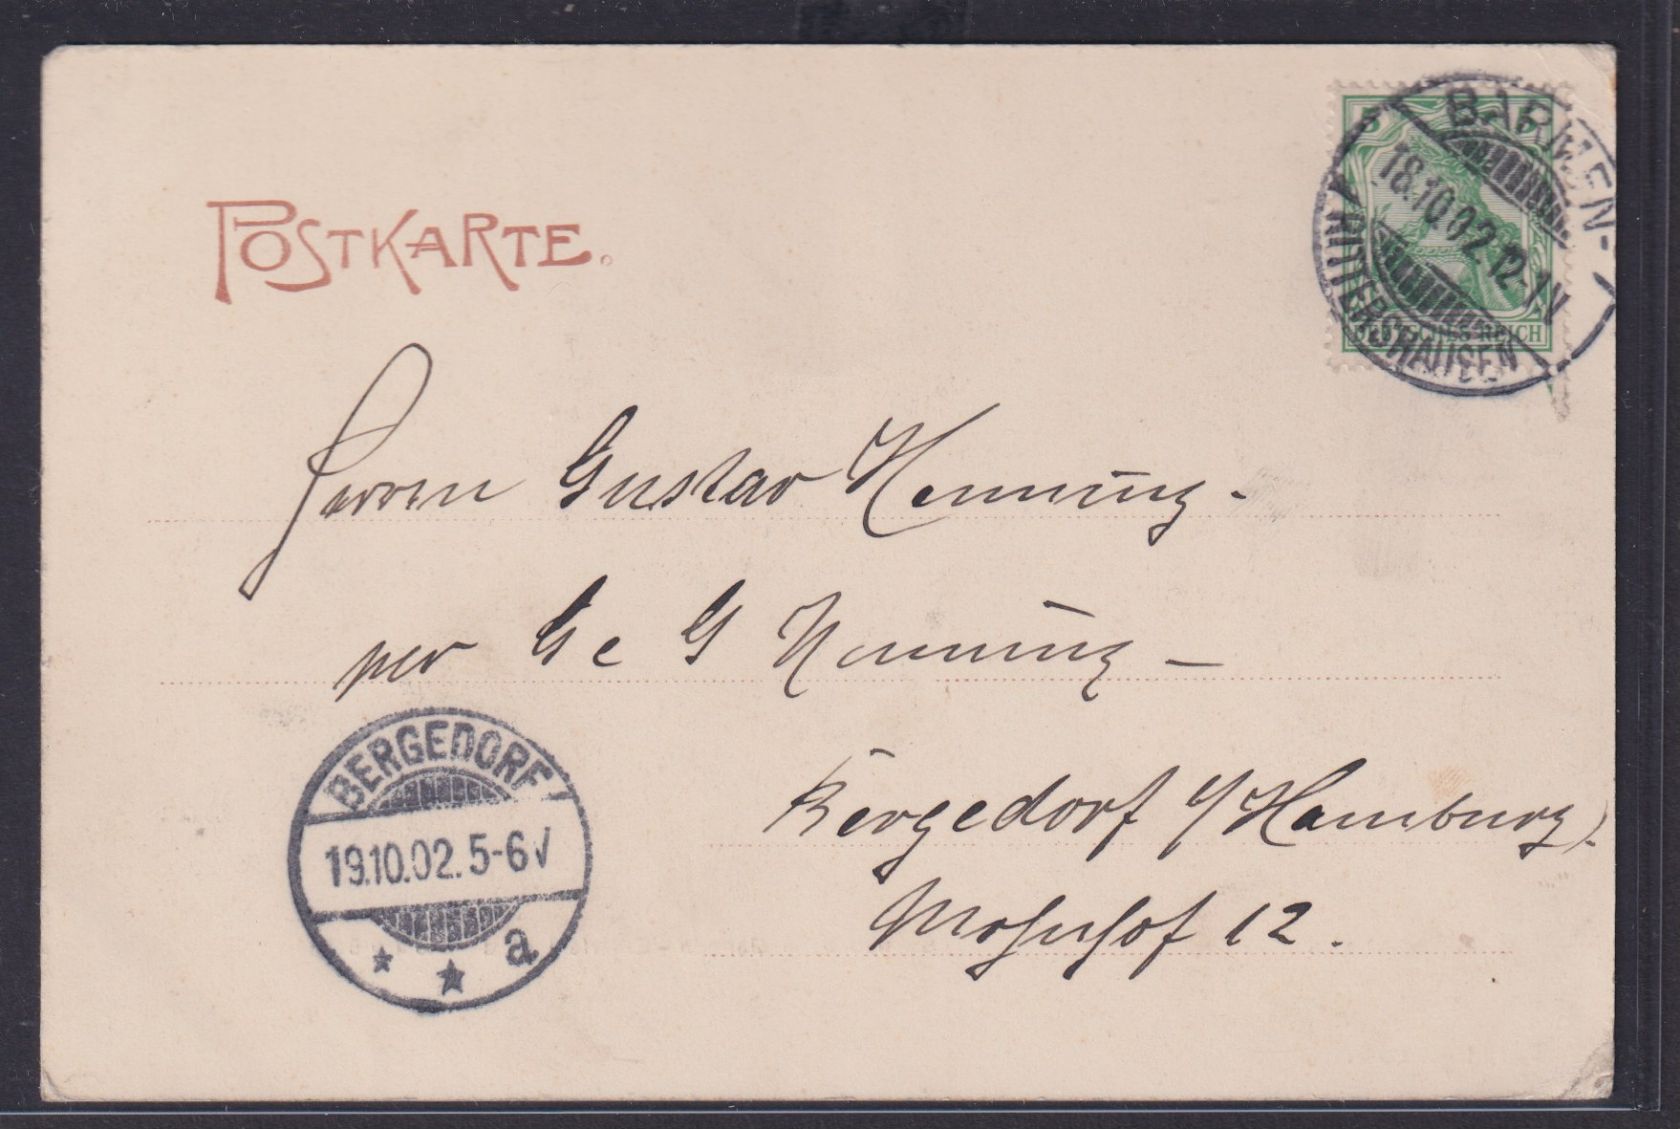 POSTKARTE.
5 5
BARMEN-
18.10.02.12-1 V
RITTERSHAUSEN
DEUTSCHES REICH
Herrn Gustav Henning.
per G Henning -
BERGEDORF
19.10.02. 5-6 V
* * a
Bergedorf b/Hamburg.
Mohnhof 12.